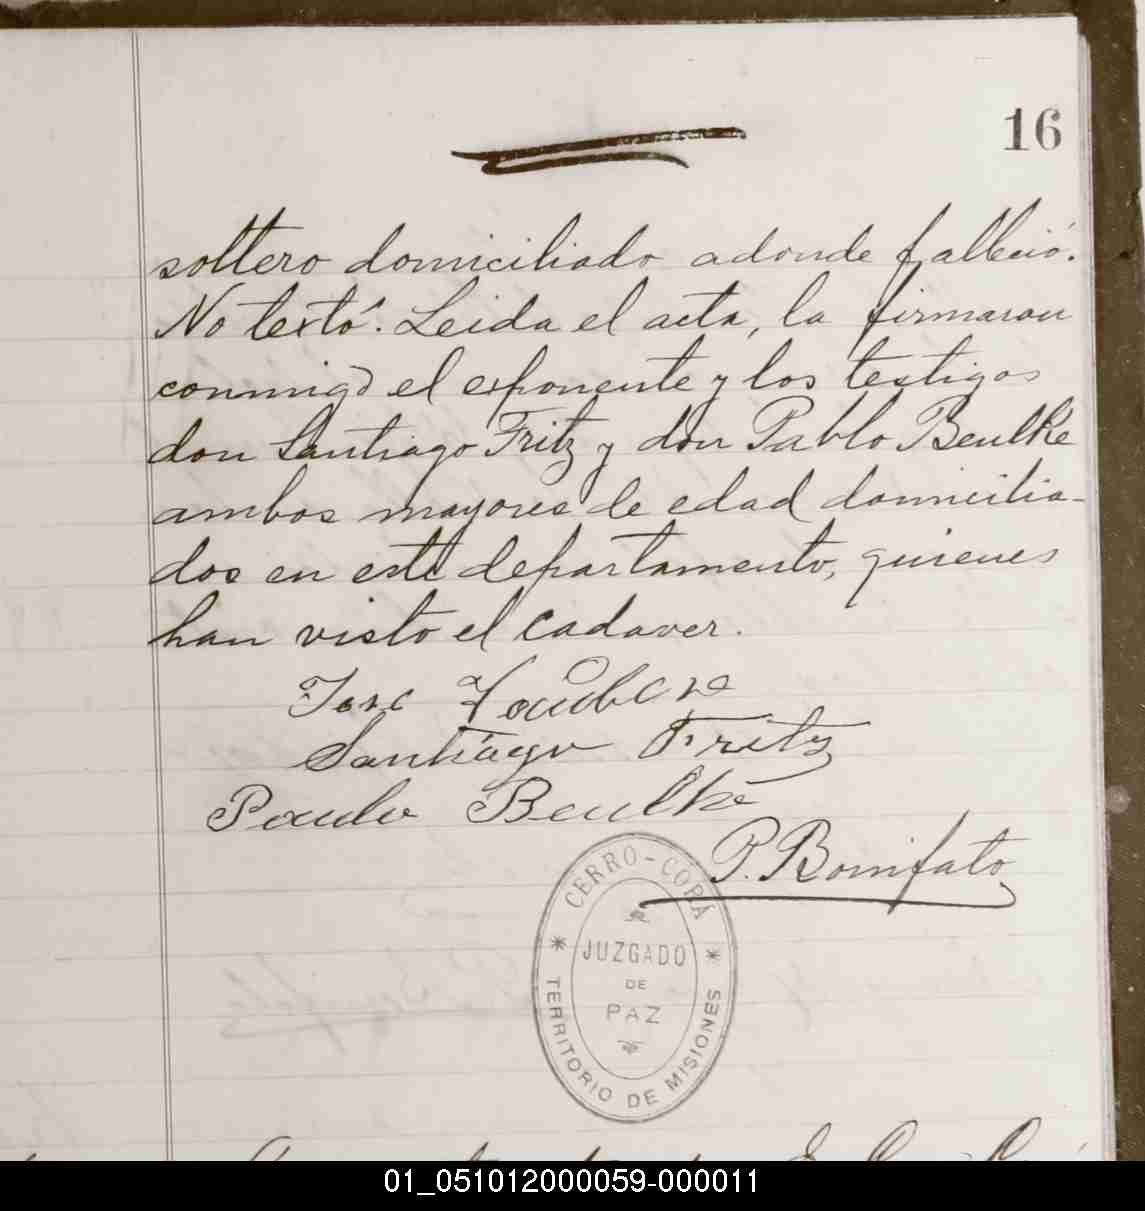 16
soltero domiciliado adonde falleció.
No testó. Leida el acta, la firmaron
conmigo el exponente y los testigos
don Santiago Fritz y don Pablo Beulke
ambos mayores de edad domicilia-
dos en este departamento, quienes
han visto el cadaver.
Jose
Santiago Fritz
Paulo Beulke
P. Bonifato
CERRO-CORÁ
JUZGADO
DE
PAZ
TERRITORIO DE MISIONES
01_051012000059-000011